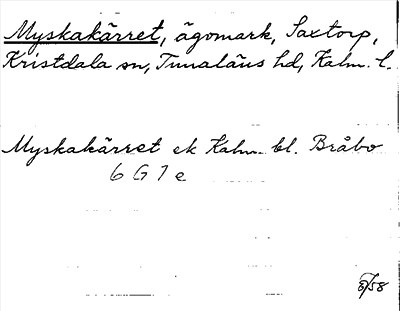 Myskakärret, ägomark, Saxtorp,
Kristdala sn, Tunaläns hd, Kalm. l.
Myskakärret ek Kalm. bl. Bråbo
6 G 7 e